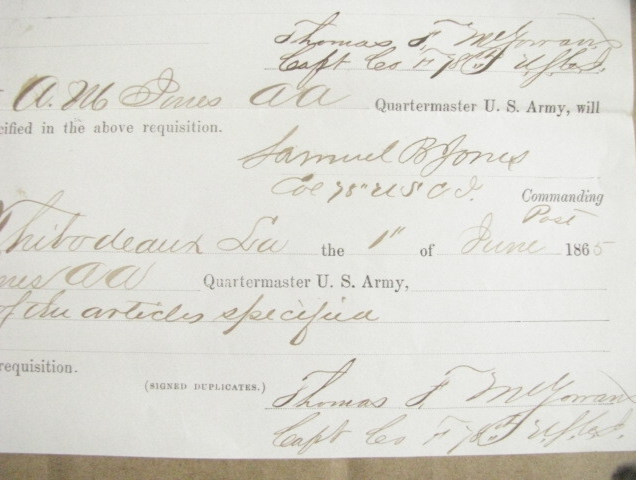 Thomas F McGowan
Capt Co F 78th U.S.C.I.
A. M Jones AA Quartermaster U. S. Army, will
cified in the above requisition.
Samuel B Jones
Col 78" U S C I. Commanding
Post
Thibodeaux La the 1" of June 1865
nes AA Quartermaster U. S. Army,
of the articles specified
requisition.
(SIGNED DUPLICATES.)
Thomas F McGowan
Capt Co F 78th U.S.C.I.